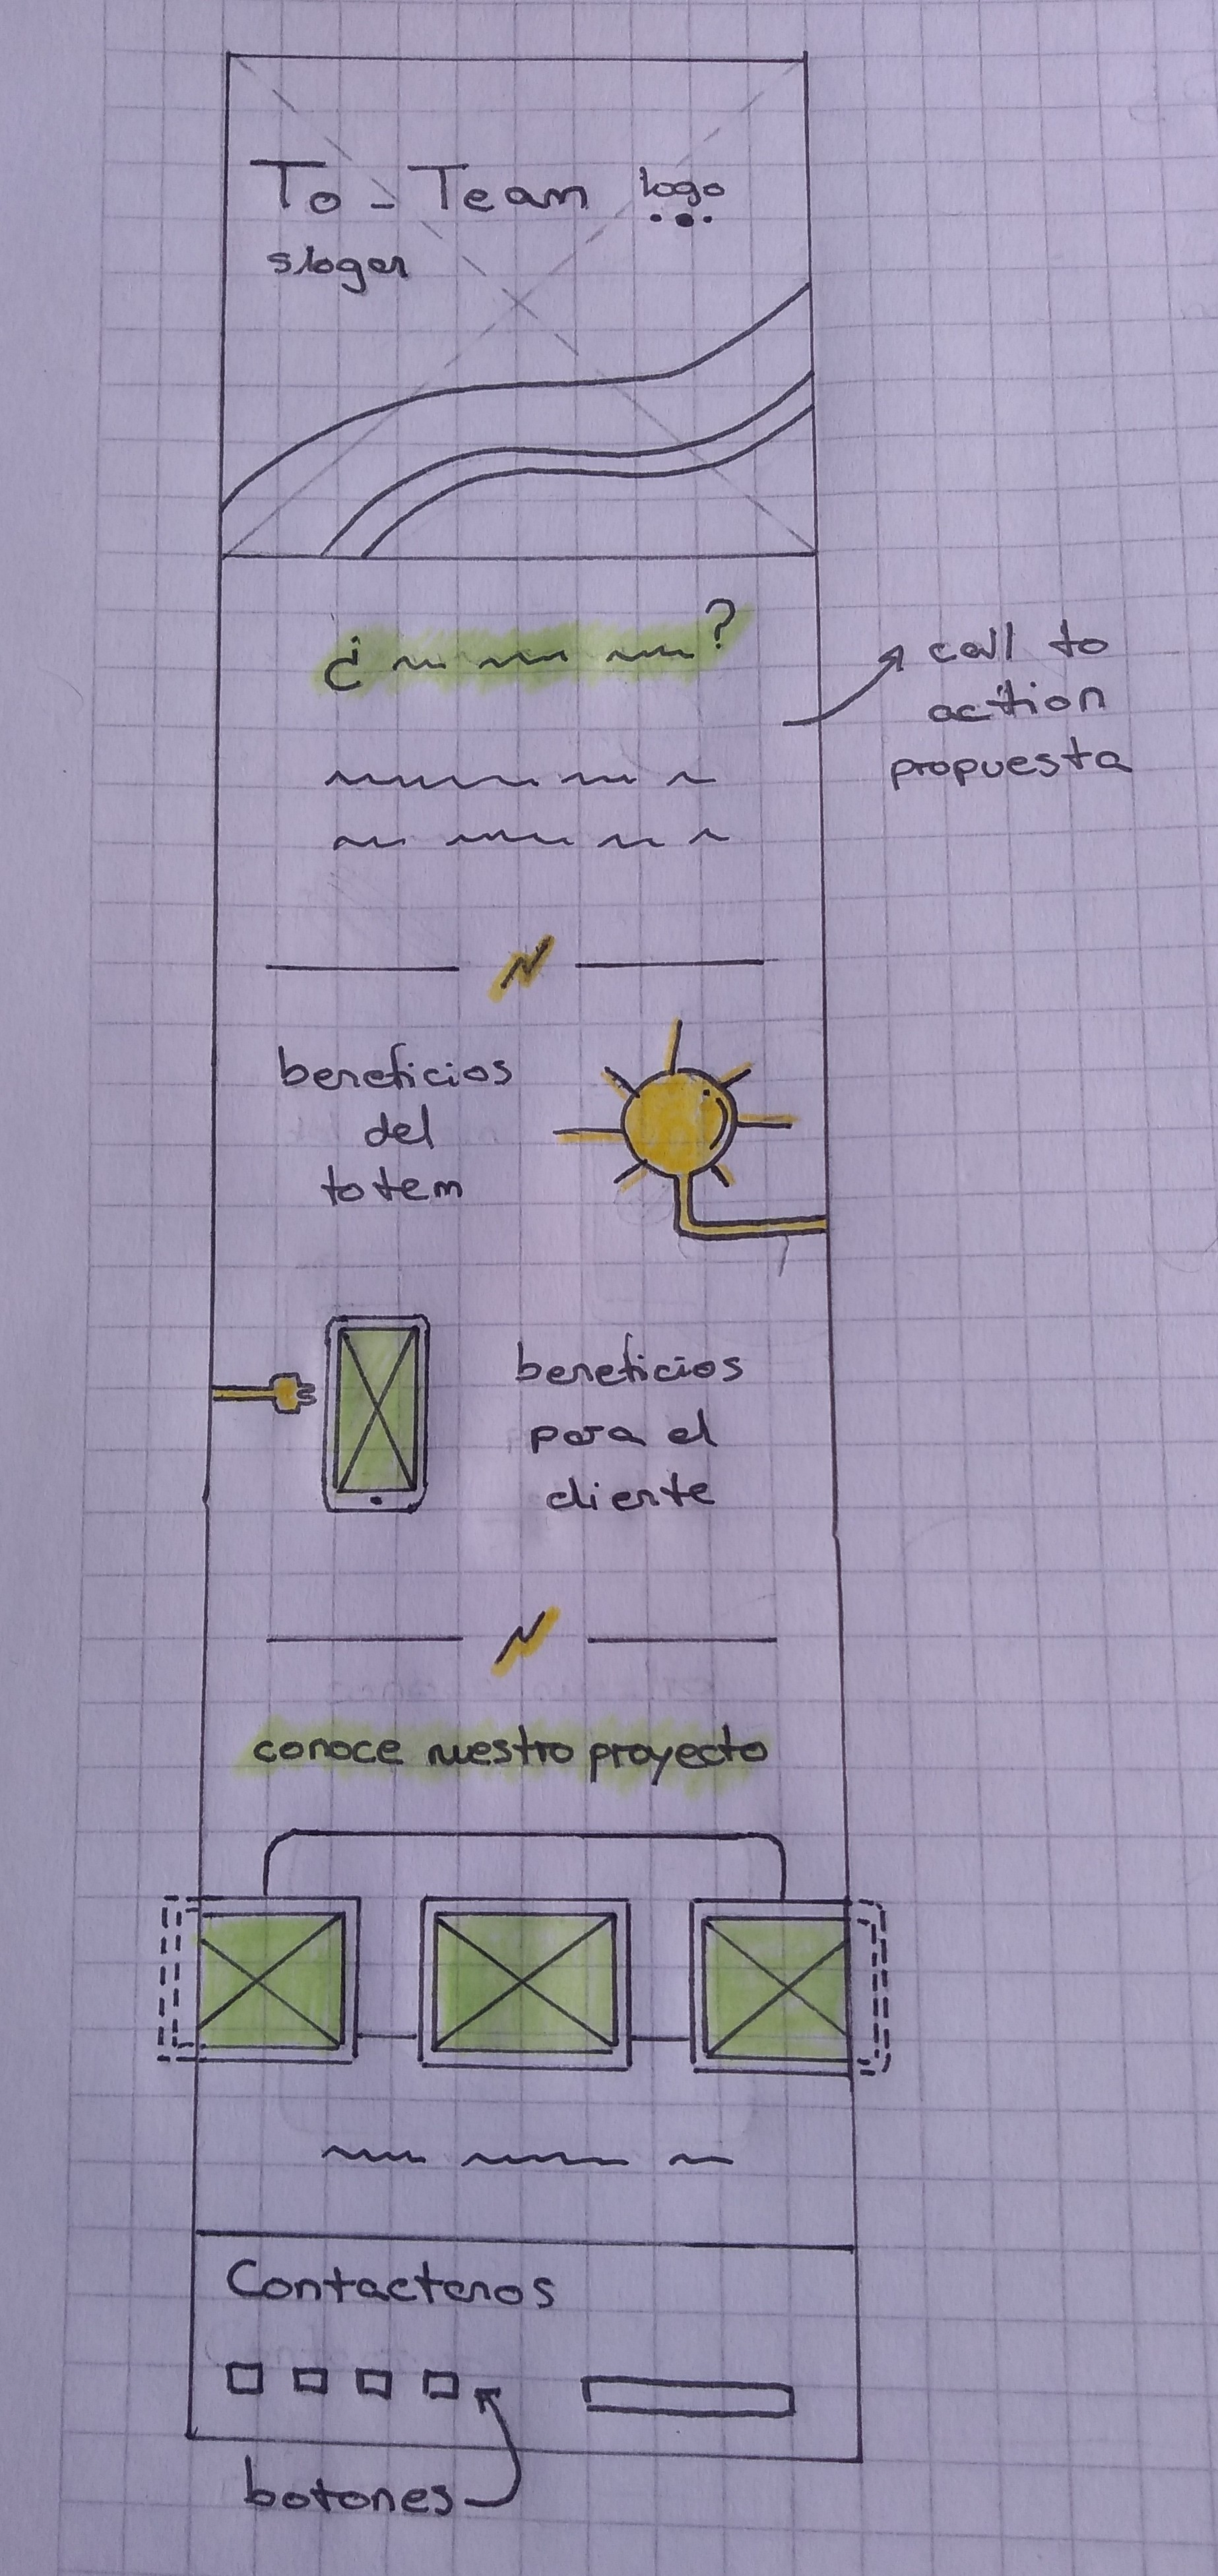 To-Team logo
slogan
¿ ?
call to
action
propuesta
beneficios
del
totem
beneficios
para el
cliente
conoce nuestro proyecto
Contactenos
botones